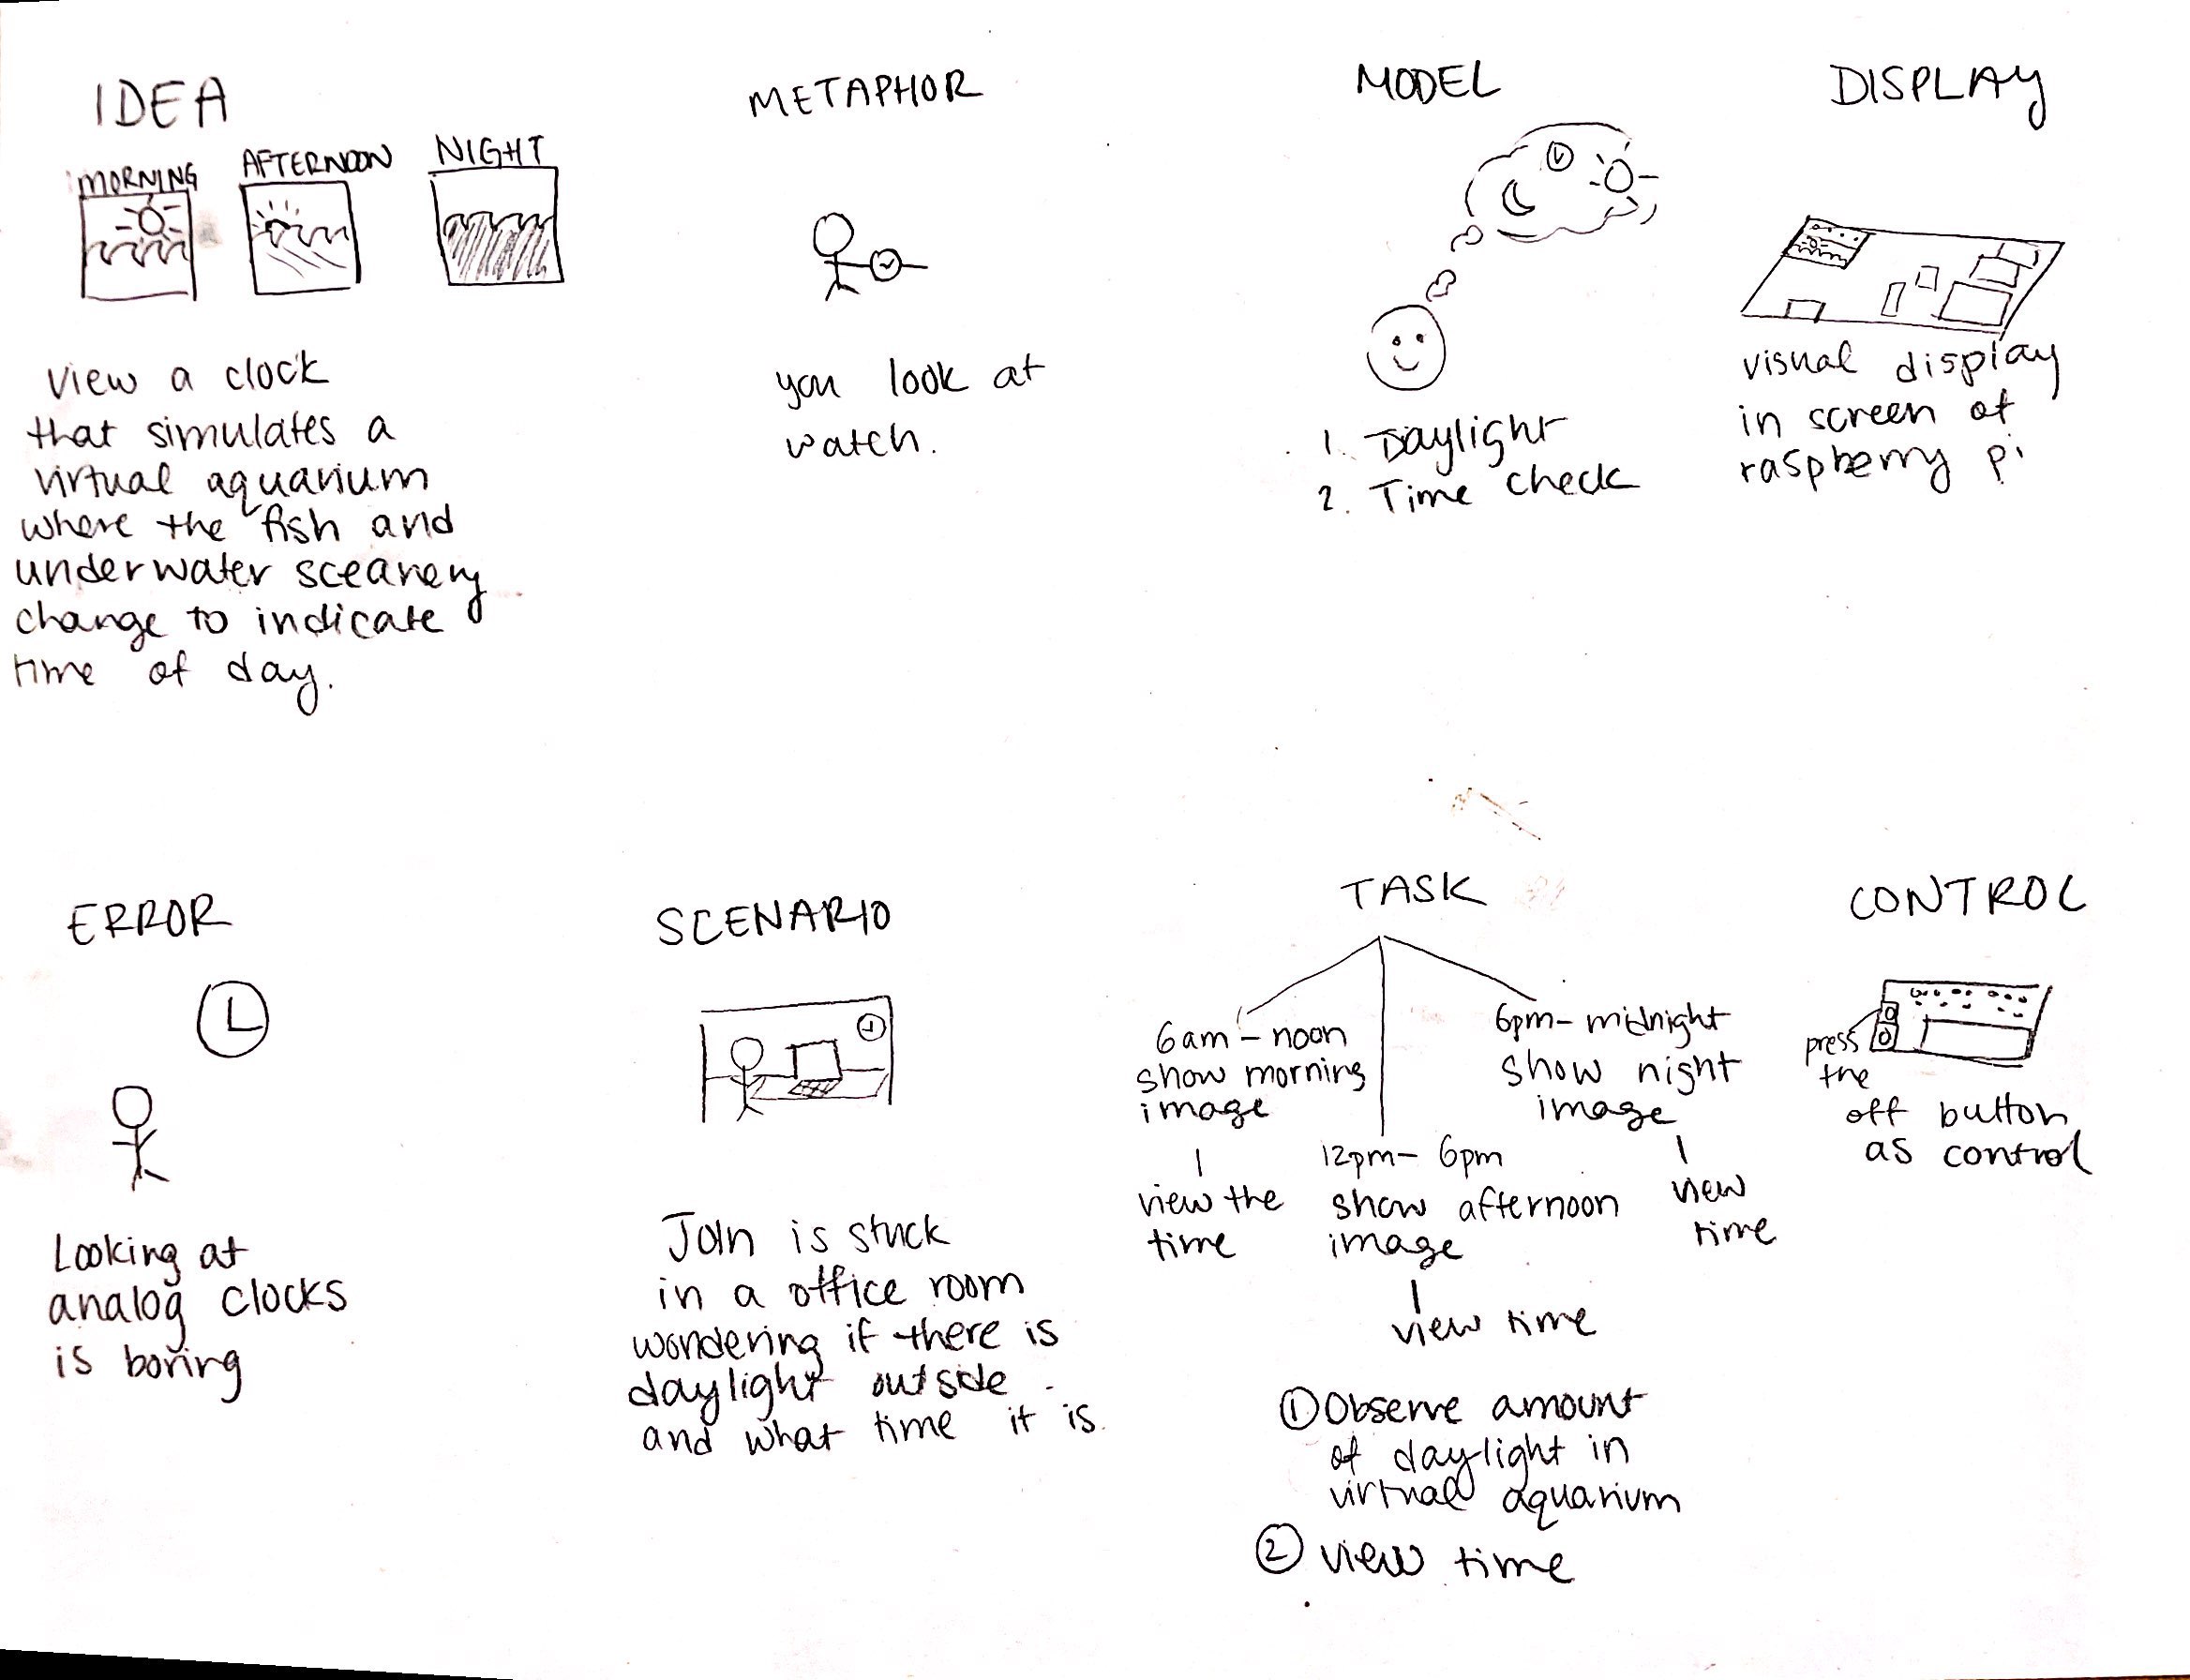 IDEA
MORNING
AFTERNOON
NIGHT
view a clock
that simulates a
virtual aquarium
where the fish and
underwater sceanery
change to indicate
time of day.
METAPHOR
you look at
watch.
MODEL
1. Daylight
2. Time check
DISPLAY
visual display
in screen of
raspberry pi
ERROR
Looking at
analog clocks
is boring
SCENARIO
John is stuck
in a office room
wondering if there is
daylight outside
and what time it is.
TASK
6am - noon
show morning
image
view the
time
12pm- 6pm
show afternoon
image
view time
6pm- midnight
show night
image
view
time
① Observe amount
of daylight in
virtual aquarium
② view time
CONTROL
press
the
off button
as control